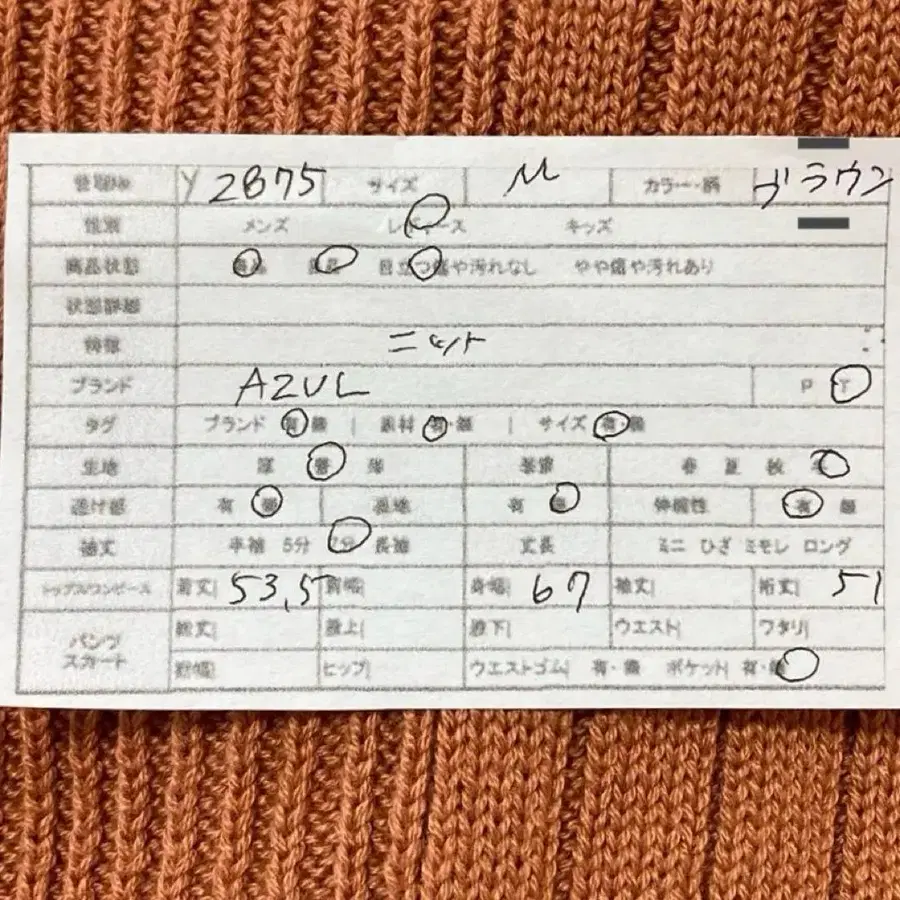 管理No Y 2875 サイズ M カラー・柄 ブラウン
性別 メンズ レディース キッズ
商品状態 美品 目立つ傷や汚れなし やや傷や汚れあり
状態詳細
特徴 ニット
ブランド AZUL P T
タグ ブランド 有・無 | 素材 有・無 | サイズ 有・無
生地 厚 普 薄 季節 春 夏 秋 冬
透け感 有 無 裏地 有 無 伸縮性 有 無
袖丈 半袖 5分 7分 長袖 丈長 ミニ ひざ ミモレ ロング
トップス/ワンピース 着丈| 53,5 肩幅| 身幅| 67 袖丈| 裄丈| 51
パンツ スカート 総丈| 股上| 股下| ウエスト| ワタリ|
裾幅| ヒップ| ウエストゴム| 有・無 ポケット| 有・無